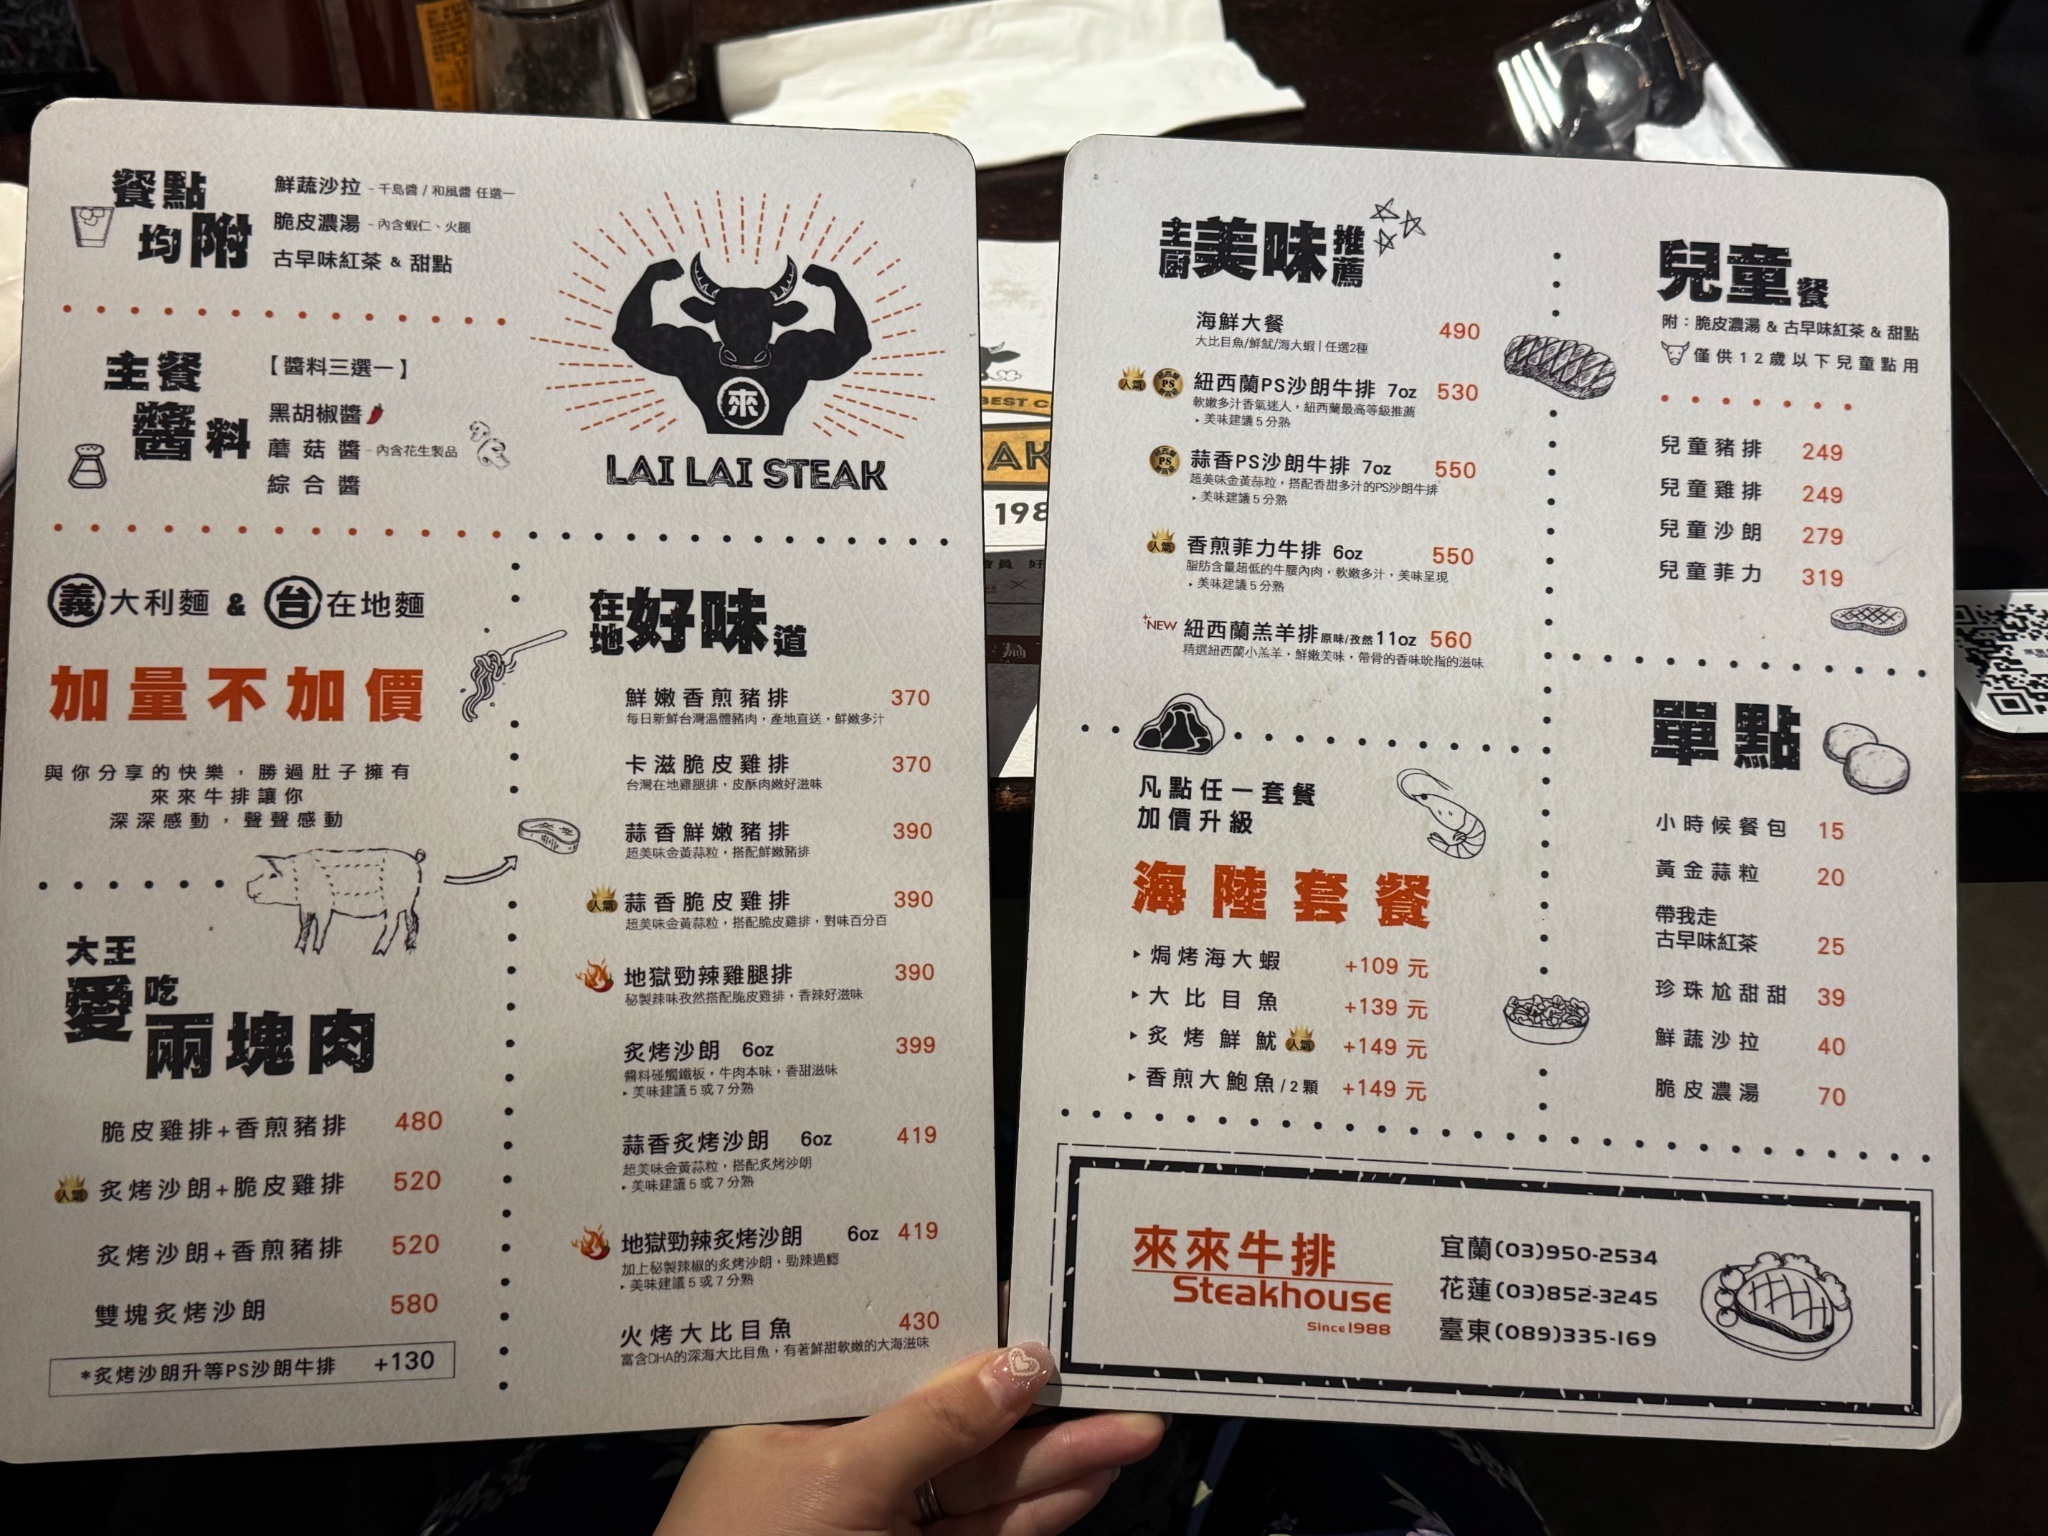 餐點均附
鮮蔬沙拉 - 千島醬 / 和風醬 任選一
脆皮濃湯 - 內含蝦仁、火腿
古早味紅茶 & 甜點
主餐醬料
【醬料三選一】
黑胡椒醬
蘑菇醬 - 內含花生製品
綜合醬
來
LAI LAI STEAK
義大利麵 & 台在地麵
加量不加價
與你分享的快樂，勝過肚子擁有
來來牛排讓你
深深感動，聲聲感動
大王愛吃兩塊肉
脆皮雞排+香煎豬排 480
人氣 炙烤沙朗+脆皮雞排 520
炙烤沙朗+香煎豬排 520
雙塊炙烤沙朗 580
*炙烤沙朗升等PS沙朗牛排 +130
在地好味道
鮮嫩香煎豬排 370
每日新鮮台灣溫體豬肉，產地直送，鮮嫩多汁
卡滋脆皮雞排 370
台灣在地雞腿排，皮酥肉嫩好滋味
蒜香鮮嫩豬排 390
超美味金黃蒜粒，搭配鮮嫩豬排
人氣 蒜香脆皮雞排 390
超美味金黃蒜粒，搭配脆皮雞排，對味百分百
地獄勁辣雞腿排 390
秘製辣味孜然搭配脆皮雞排，香辣好滋味
炙烤沙朗 6oz 399
醬料碰觸鐵板，牛肉本味，香甜滋味
▸ 美味建議 5 或 7 分熟
蒜香炙烤沙朗 6oz 419
超美味金黃蒜粒，搭配炙烤沙朗
▸ 美味建議 5 或 7 分熟
地獄勁辣炙烤沙朗 6oz 419
加上秘製辣椒的炙烤沙朗，勁辣過癮
▸ 美味建議 5 或 7 分熟
火烤大比目魚 430
富含DHA的深海大比目魚，有著鮮甜軟嫩的大海滋味
BEST C
AK
198
主廚美味推薦
海鮮大餐 490
大比目魚/鮮魷/海大蝦 | 任選2種
人氣 PS 紐西蘭PS沙朗牛排 7oz 530
軟嫩多汁香氣迷人，紐西蘭最高等級推薦
▸ 美味建議 5 分熟
PS 蒜香PS沙朗牛排 7oz 550
超美味金黃蒜粒，搭配香甜多汁的PS沙朗牛排
▸ 美味建議 5 分熟
人氣 香煎菲力牛排 6oz 550
脂肪含量超低的牛腰內肉，軟嫩多汁，美味呈現
▸ 美味建議 5 分熟
NEW 紐西蘭羔羊排 原味/孜然 11oz 560
精選紐西蘭小羔羊，鮮嫩美味，帶骨的香味吮指的滋味
凡點任一套餐
加價升級
海陸套餐
▸ 焗烤海大蝦 +109 元
▸ 大比目魚 +139 元
▸ 炙烤鮮魷 人氣 +149 元
▸ 香煎大鮑魚/2顆 +149 元
兒童餐
附：脆皮濃湯 & 古早味紅茶 & 甜點
僅供12歲以下兒童點用
兒童豬排 249
兒童雞排 249
兒童沙朗 279
兒童菲力 319
單點
小時候餐包 15
黃金蒜粒 20
帶我走
古早味紅茶 25
珍珠尬甜甜 39
鮮蔬沙拉 40
脆皮濃湯 70
來來牛排
Steakhouse
Since 1988
宜蘭(03)950-2534
花蓮(03)852-3245
臺東(089)335-169